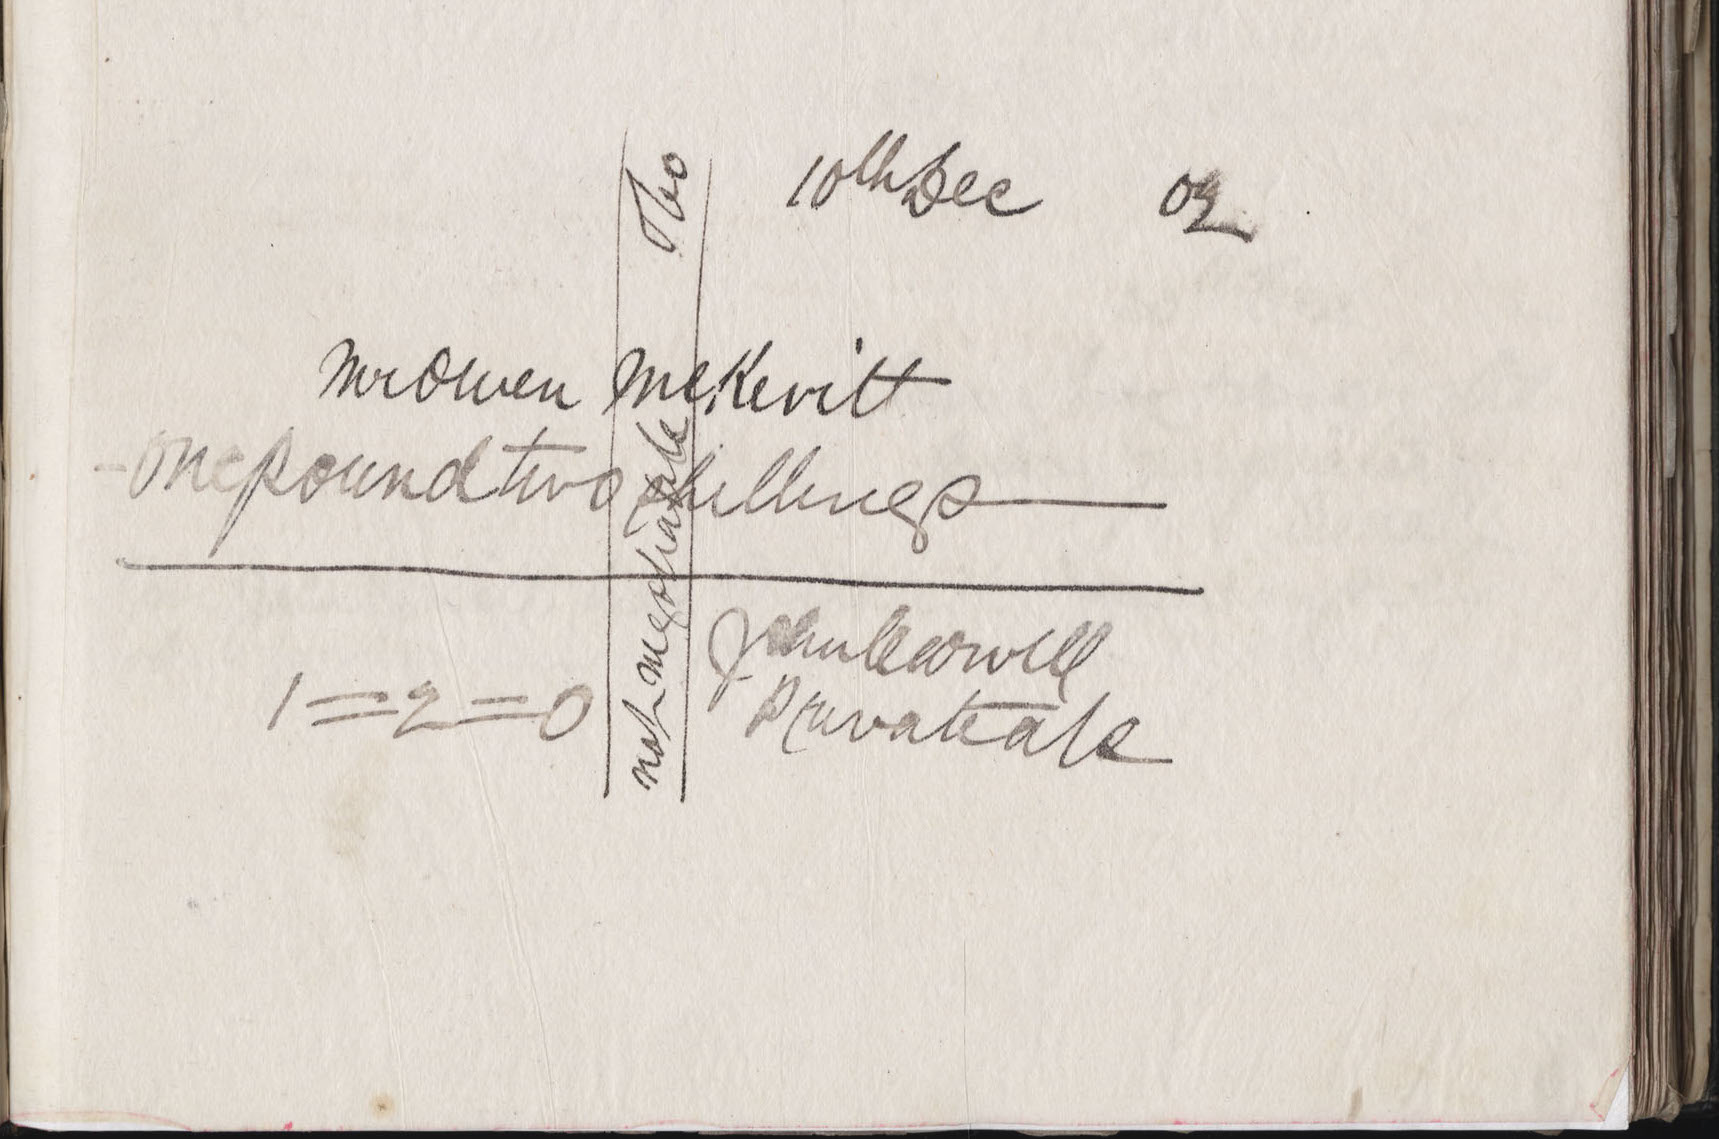 10th Dec 02
Mr Owen McKevitt
- One pound two shillings
1 = 2 = 0
John
Private a/c
not negotiable &Co